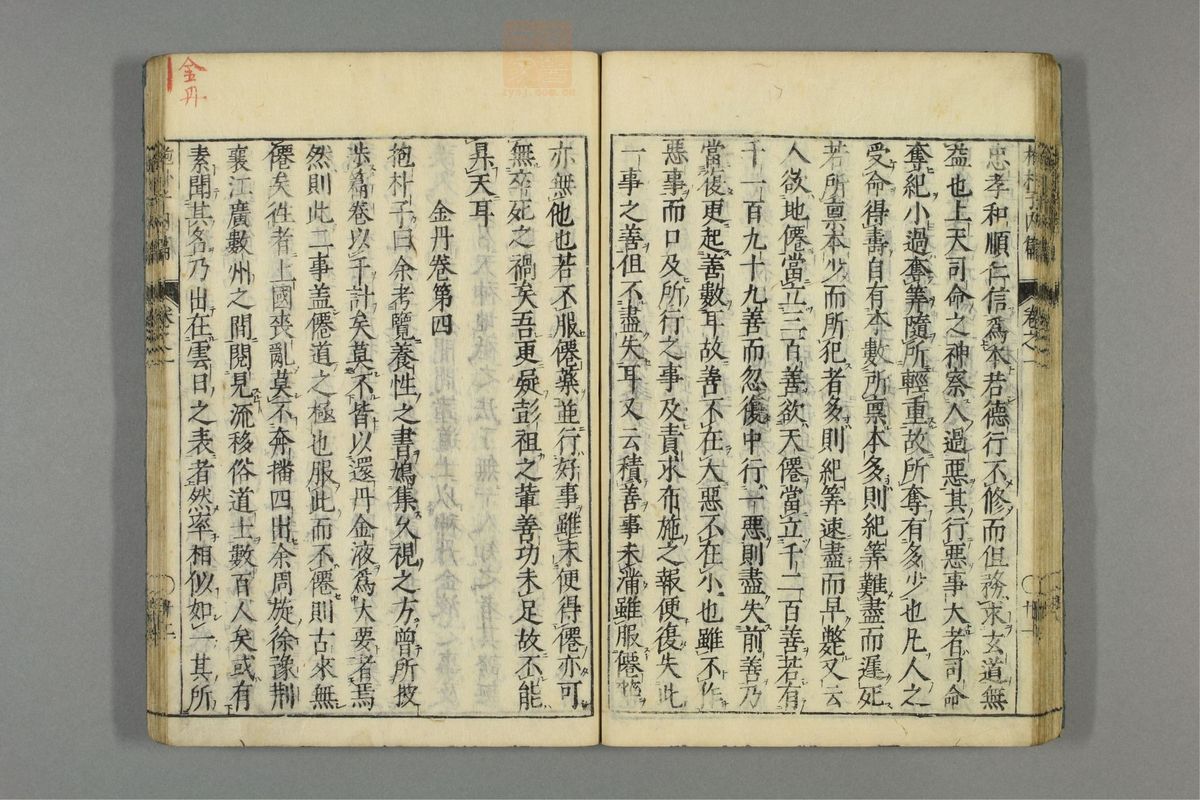 忠孝和順仁信爲本若德行不修而但務求玄道無
益也上天司命之神察人過惡其行惡事大者司命
奪紀小過奪筭隨所輕重故所奪有多少也凡人之
受命得壽自有本數所禀本多則紀筭難盡而遲死
若所禀本少而所犯者多則紀筭速盡而早斃又云
人欲地僊當立三百善欲天僊當立千二百善若有
千一百九十九善而忽復中行一惡則盡失前善乃
當復更起善數耳故善不在大惡不在小也雖不作
惡事而口及所行之事及責求布施之報便復失此
一事之善但不盡失耳又云積善事未滿雖服僊藥
亦無他也若不服僊藥並行好事雖未便得僊亦可
無卒死之禍矣吾更疑彭祖之輩善功未足故不能
昇天耳
金丹卷第四
抱朴子曰余考覽養性之書鳩集久視之方曾所披
涉篇卷以千計矣莫不皆以還丹金液爲大要者焉
然則此二事盖僊道之極也服此而不僊則古來無
僊矣徃者上國喪亂莫不奔播四出余周旋徐豫荆
襄江廣數州之間閱見流移俗道士數百人矣或有
素聞其名乃出在雲日之表者然率相似如一其所
金丹
抱朴子内篇
卷之一